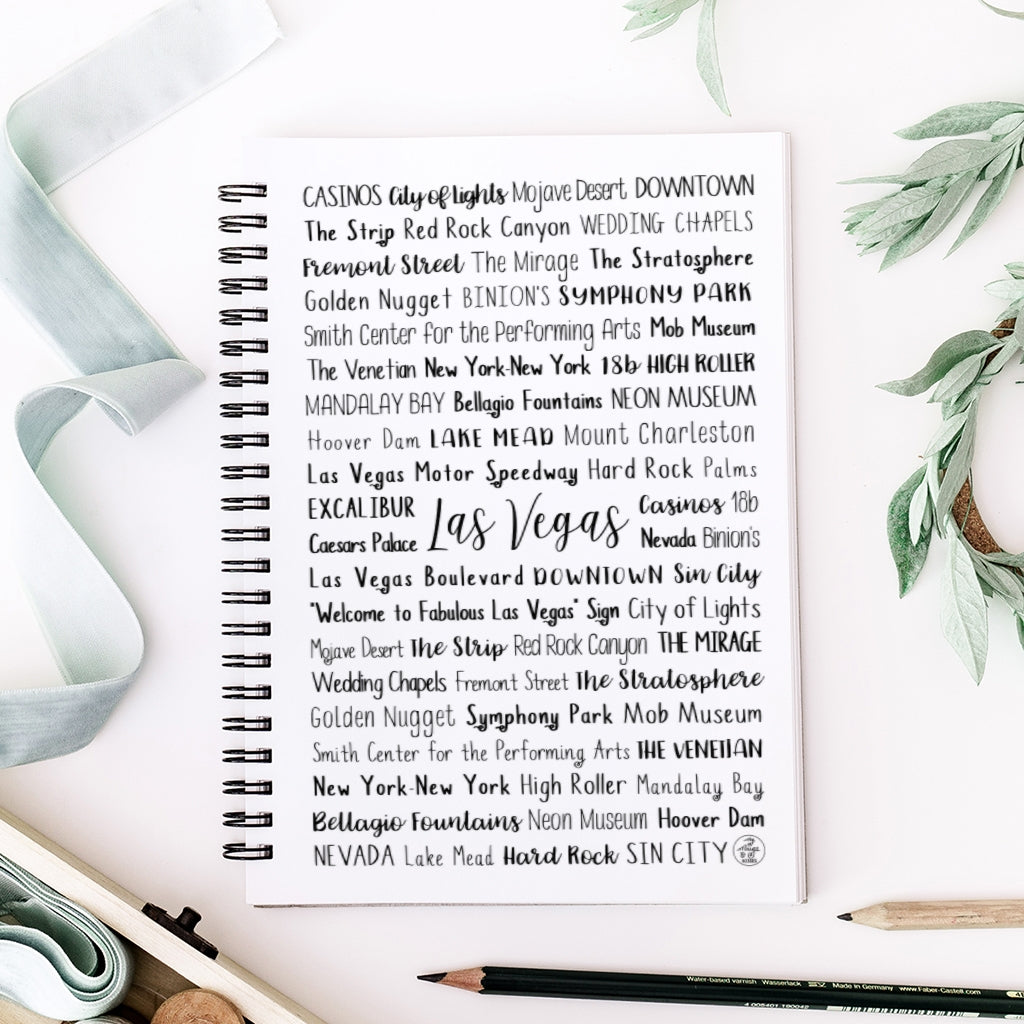 CASINOS City of Lights Mojave Desert DOWNTOWN
The Strip Red Rock Canyon WEDDING CHAPELS
Fremont Street The Mirage The Stratosphere
Golden Nugget BINION'S SYMPHONY PARK
Smith Center for the Performing Arts Mob Museum
The Venetian New York-New York 18b HIGH ROLLER
MANDALAY BAY Bellagio Fountains NEON MUSEUM
Hoover Dam LAKE MEAD Mount Charleston
Las Vegas Motor Speedway Hard Rock Palms
EXCALIBUR
Caesars Palace
Las Vegas
Casinos 18b
Nevada Binion's
Las Vegas Boulevard DOWNTOWN Sin City
"Welcome to Fabulous Las Vegas" Sign City of Lights
Mojave Desert The Strip Red Rock Canyon THE MIRAGE
Wedding Chapels Fremont Street The Stratosphere
Golden Nugget Symphony Park Mob Museum
Smith Center for the Performing Arts THE VENETIAN
New York-New York High Roller Mandalay Bay
Bellagio Fountains Neon Museum Hoover Dam
NEVADA Lake Mead Hard Rock SIN CITY
Water-based varnish Wasserlack Made in Germany www.Faber-Castell.com
4 005401 190042